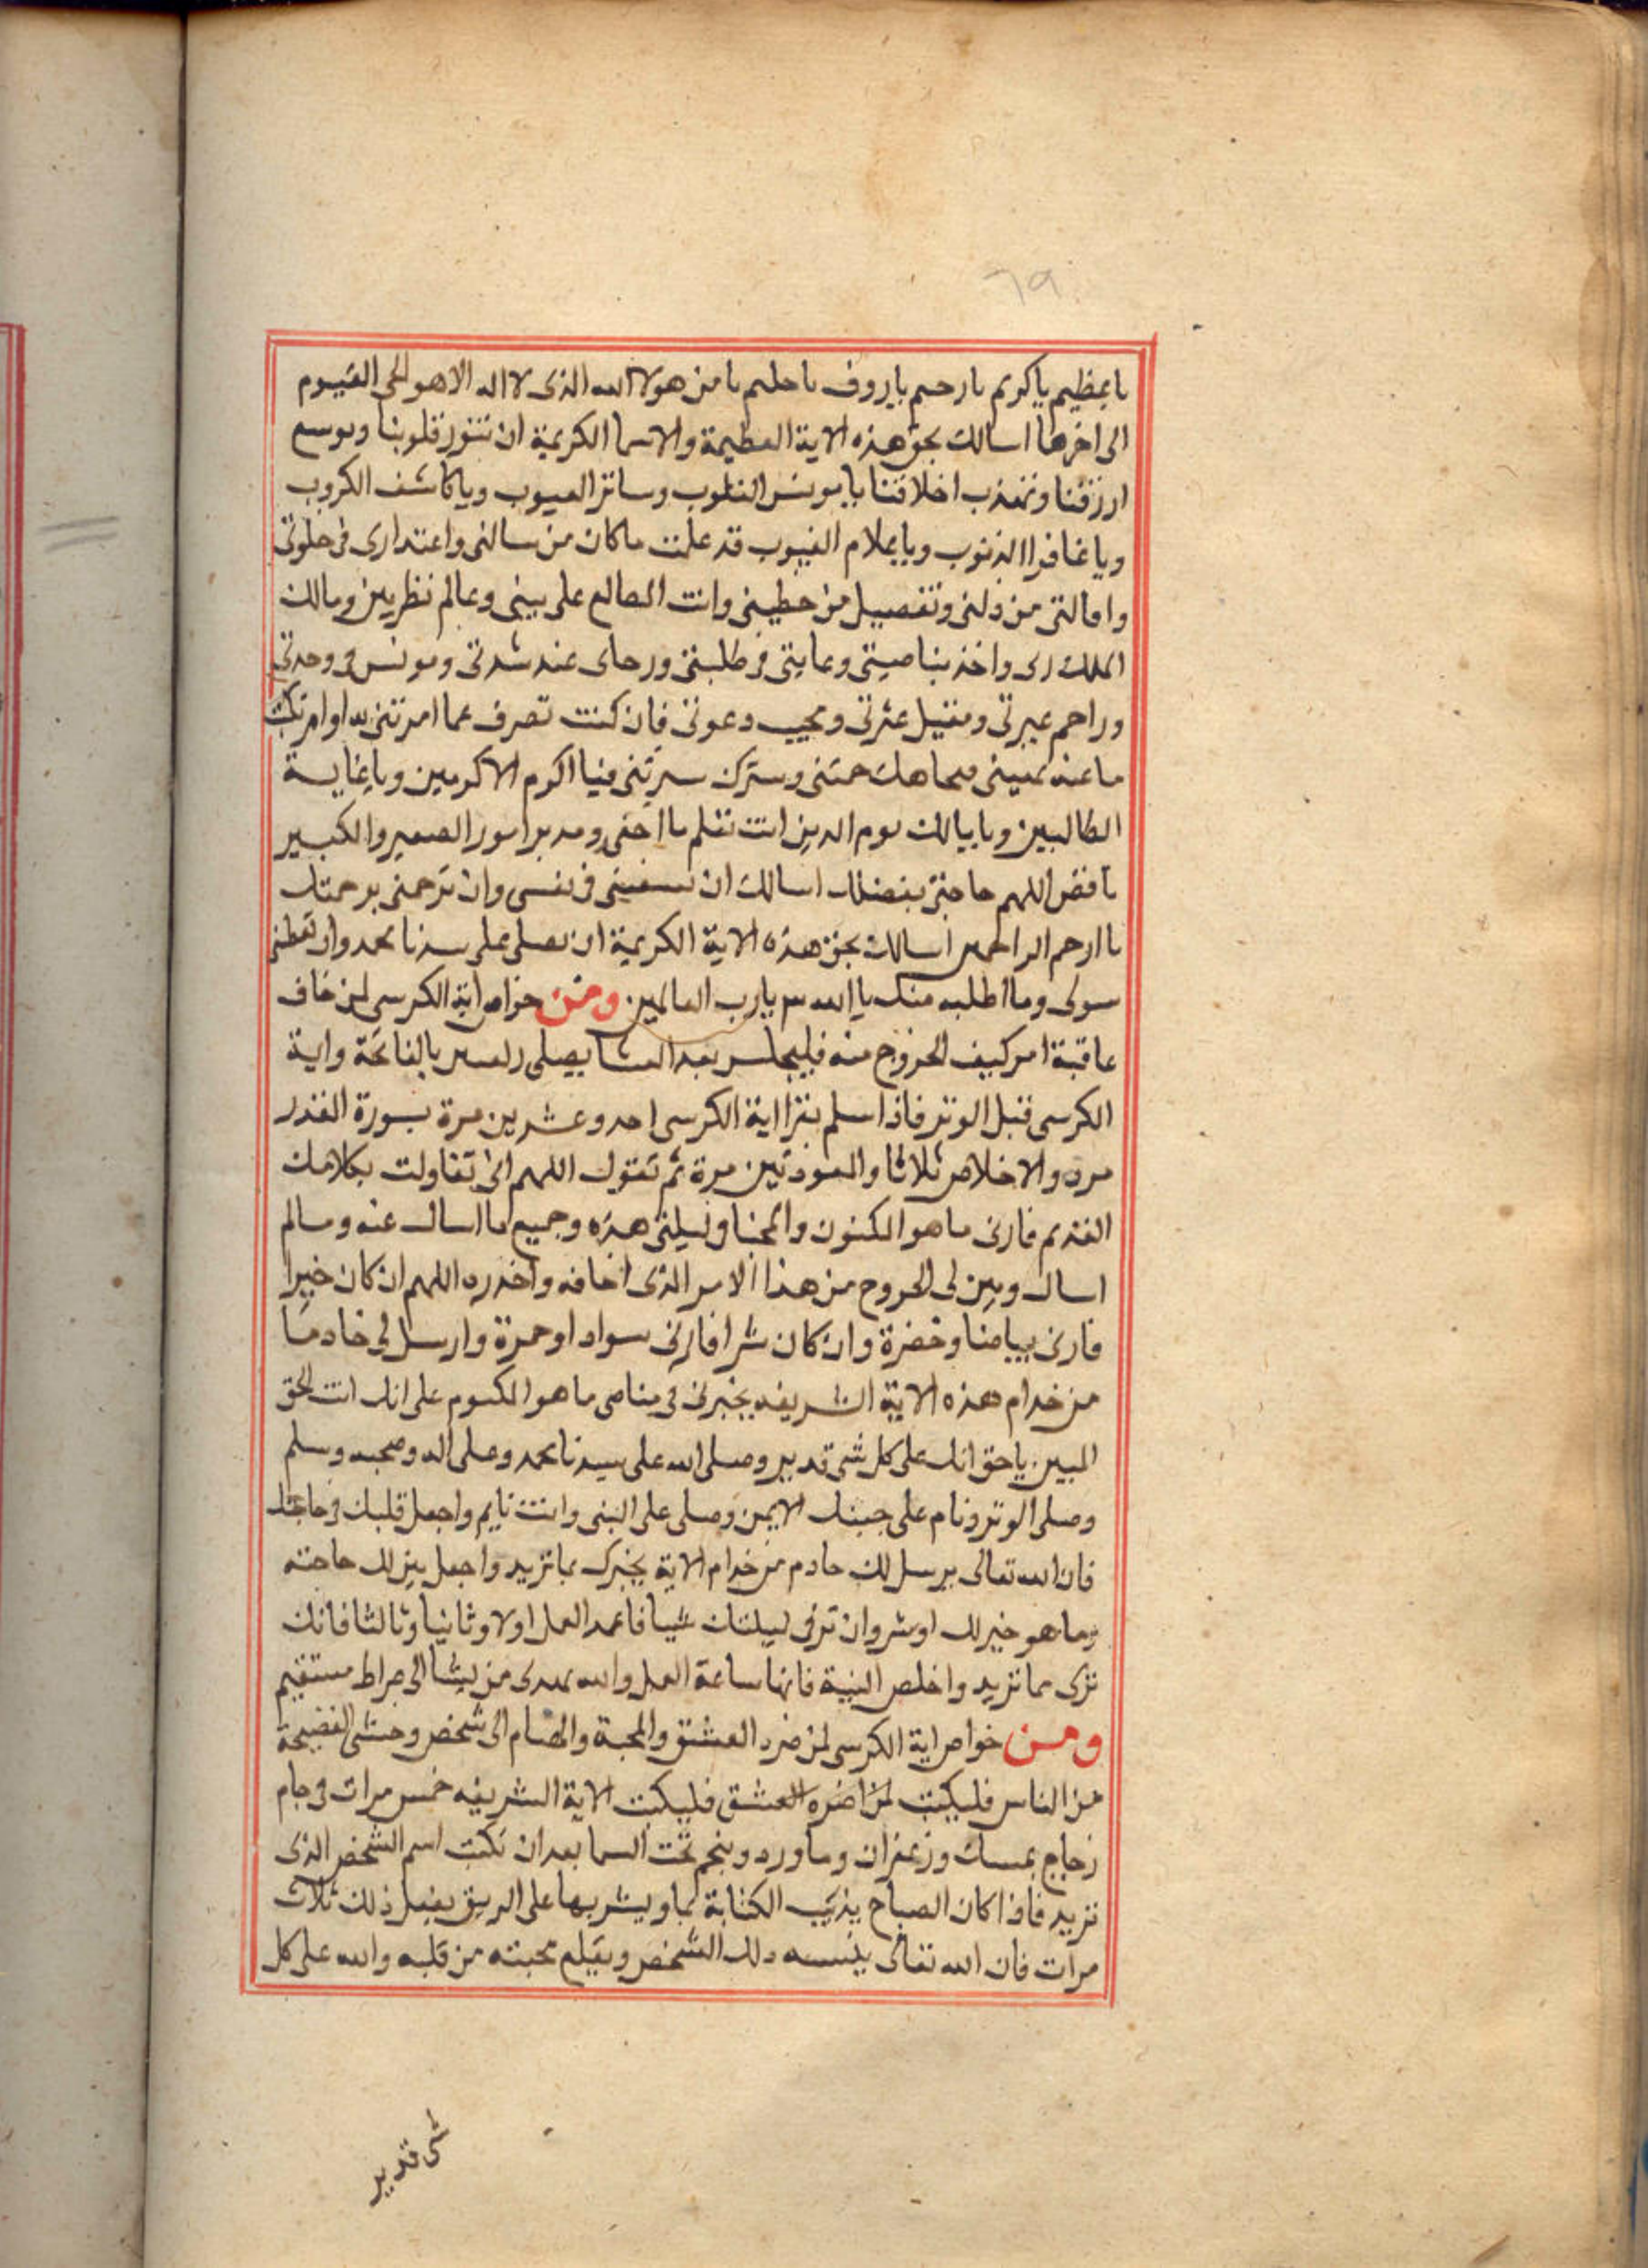 ٦٩
يا عظيم يا كريم يا رحيم يا روف يا حليم يا من هو لا اله الذى لا اله الا هو الحى القيوم
الى اخرها اسالك بحق هذه الاية العظيمة والاسما الكريمة ان تنور قلوبنا وتوسع
ارزقنا وتهذب اخلاقنا يا مونس القلوب وساتر العيوب ويا كاشف الكروب
ويا غافر الذنوب ويا علام الغيوب قد علمت ما كان من سالنى واعتدارى فى خلوتى
واقالتى من ذلتى وتفصيل من خطيتى وانت الطالع على بينى وعالم نظريين ومالك
الملك رى واخذ بناصيتى وغايتى فى طلبتى ورجاى عند شدتى ومونس فى وحدتى
وراحم عبرتى ومقيل عثرتى ومجيب دعوتى فان كنت تصرف عما امرتنى به او
ما عنه وسترك سيرتى فيا اكرم الاكرمين ويا غاية
الطالبين ويا مالك يوم الدين انت تعلم ما اخفى ومدبر امور الصغير والكبير
فاقض اللهم حاجتى بفضلك اسالك ان فى نفسى وان ترحمنى برحمتك
يا ارحم الراحمين اسالك بحق هذه الاية الكريمة ان تصلى على سيدنا محمد وان تعطنى
سولى وما اطلبه منك يا الله يا رب العالمين ومن خواص اية الكرسى لمن خاف
عاقبة امر كيف الخروج منه فليجلس بعد العشا يصلى بالفاتحة واية
الكرسى قبل الوتر فاذا سلم يقرا اية الكرسى احد وعشرين مرة بسورة القدر
مره والاخلاص ثلاثا والمعودتين مرة ثم تقول اللهم انى تفاولت بكلامك
القديم فارنى ما هو المكنون والمخبا فى ليلتى هذه وجميع ما اسال عنه وما لم
اسال وبين لى الخروج من هذا الامر الذى اخافه واحذره اللهم ان كان خيرا
فارنى بياضا وخضرة وان كان شرا فارنى سوادا وحمرة وارسل لى خادما
من خدام هذه الاية الشريفه يخبرنى فى منامى ما هو المكتوم على انك انت الحق
المبين يا حق انك على كل شى قدير وصلى الله على سيدنا محمد وعلى اله وصحبه وسلم
وصلى الوتر ونام على جنبك الايمن وصلى على النبى وانت نايم واجعل قلبك فى حاجتك
فان الله تعالى يرسل لك خادم من خدام الاية يخبرك بما تريد واجعل بين لك حاجته
وما هو خير لك او شر وان تر فى ليلتك شيا فاعمد العمل اولا وثانيا وثالثا فانك
ترى ما تريد واخلص النية فانها ساعة العمل والله يهدى من يشا الى صراط مستقيم
ومن خواص اية الكرسى لمن ضره العشق والمحبة والهيام الى شخص وخشى الفضيحة
من الناس فليكتب لمن اضره العشق فليكتب الاية الشريفه خمس مرات فى جام
زجاج بمسك وزعفران وماورد وينجم تحت السما بعد ان تكتب اسم الشخص الذى
تريد فاذا كان الصباح يذيب الكتابة بما ويشربها على الريق يفعل ذلك ثلاث
مرات فان الله تعالى ينسيه ذلك الشخص ويقلع محبته من قلبه والله على كل
شى قدير